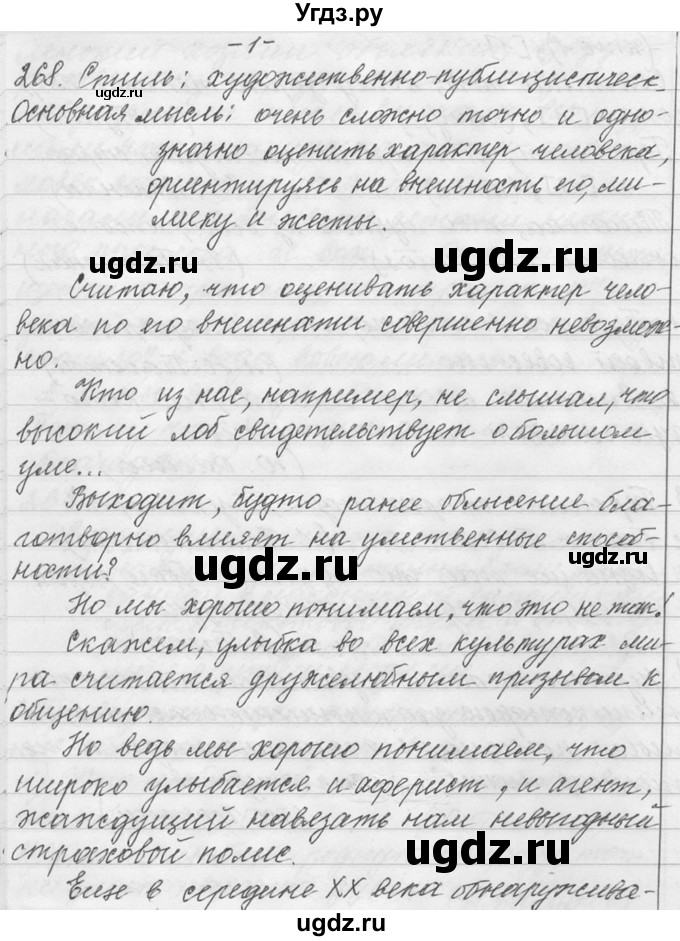 Угдз.ру
-1-
268. Стиль: художественно-публицистическ.
Основная мысль: очень сложно точно и одно-
значно оценить характер человека,
ориентируясь на внешность его, ми-
мику и жесты.
Считаю, что оценивать характер чело-
века по его внешности совершенно невозмож-
но.
Кто из нас, например, не слышал, что
высокий лоб свидетельствует о большом
уме...
Выходит, будто ранее облысение бла-
готворно влияет на умственные способ-
ности?
Но мы хорошо понимаем, что это не так!
Скажем, улыбка во всех культурах ми-
ра считается дружелюбным призывом к
общению.
Но ведь мы хорошо понимаем, что
широко улыбается и аферист, и агент,
жаждущий навязать нам невыгодный
страховой полис.
Еще в середине XX века обнаружива-
ugdz.ru
ugdz.ru
ugdz.ru
ugdz.ru
ugdz.ru
ugdz.ru
ugdz.ru